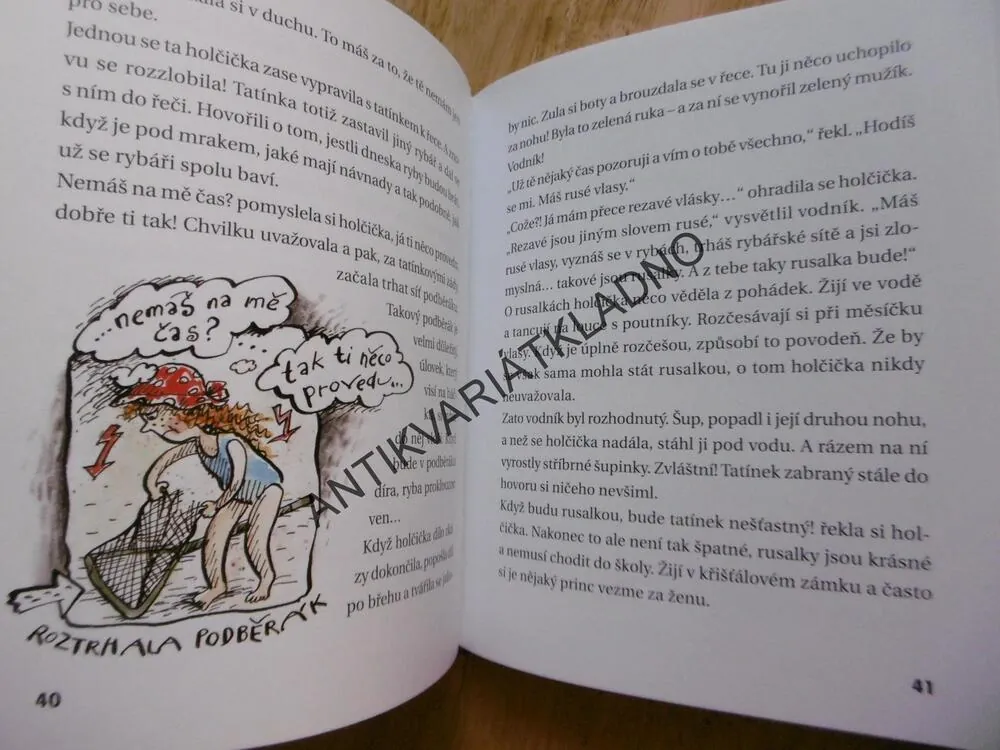 si v duchu. To máš za to, že tě nemám jen
pro sebe.
Jednou se ta holčička zase vypravila s tatínkem k řece. A zno-
vu se rozzlobila! Tatínka totiž zastavil jiný rybář a dal se
s ním do řeči. Hovořili o tom, jestli dneska ryby budou brát,
když je pod mrakem, jaké mají návnady a tak podobně, jak
už se rybáři spolu baví.
Nemáš na mě čas? pomyslela si holčička, já ti něco provedu,
dobře ti tak! Chvilku uvažovala a pak, za tatínkovými zády,
začala trhat síť podběráku.
Takový podběrák je
velmi důležitý,
úlovek, který
visí na
do něj
bude v podběráku
díra, ryba proklouzne
ven…
Když holčička dílo zká-
zy dokončila, popošla
po břehu a tvářila se jako-
...nemáš na mě
čas?
tak ti něco
provedu...
ROZTRHALA PODBĚRÁK
40
by nic. Zula si boty a brouzdala se v řece. Tu ji něco uchopilo
za nohu! Byla to zelená ruka – a za ní se vynořil zelený mužík.
Vodník!
„Už tě nějaký čas pozoruji a vím o tobě všechno,“ řekl. „Hodíš
se mi. Máš rusé vlasy.“
„Cože?! Já mám přece rezavé vlásky…“ ohradila se holčička.
„Rezavé jsou jiným slovem rusé,“ vysvětlil vodník. „Máš
rusé vlasy, vyznáš se v rybách, trháš rybářské sítě a jsi zlo-
myslná… takové jsou rusalky. A z tebe taky rusalka bude!“
O rusalkách holčička něco věděla z pohádek. Žijí ve vodě
a tancují na louce s poutníky. Rozčesávají si při měsíčku
vlasy. Když je úplně rozčešou, způsobí to povodeň. Že by
se však sama mohla stát rusalkou, o tom holčička nikdy
neuvažovala.
Zato vodník byl rozhodnutý. Šup, popadl i její druhou nohu,
a než se holčička nadála, stáhl ji pod vodu. A rázem na ní
vyrostly stříbrné šupinky. Zvláštní! Tatínek zabraný stále do
hovoru si ničeho nevšiml.
Když budu rusalkou, bude tatínek nešťastný! řekla si hol-
čička. Nakonec to ale není tak špatné, rusalky jsou krásné
a nemusí chodit do školy. Žijí v křišťálovém zámku a často
si je nějaký princ vezme za ženu.
41
ANTIKVARIÁTKLADNO